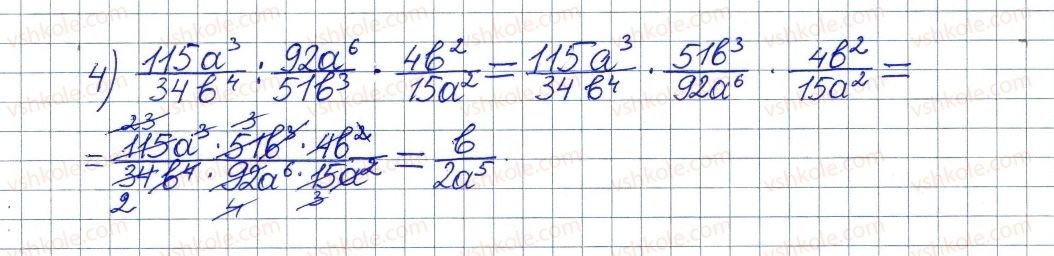 4) \frac{115a^3}{34b^4} : \frac{92a^6}{51b^3} \cdot \frac{4b^2}{15a^2} = \frac{115a^3}{34b^4} \cdot \frac{51b^3}{92a^6} \cdot \frac{4b^2}{15a^2} =
= \frac{\overset{23}{115}a^3 \cdot \overset{3}{51}b^3 \cdot 4b^2}{\underset{2}{34}b^4 \cdot \underset{4}{92}a^6 \cdot \underset{3}{15}a^2} = \frac{b}{2a^5}.